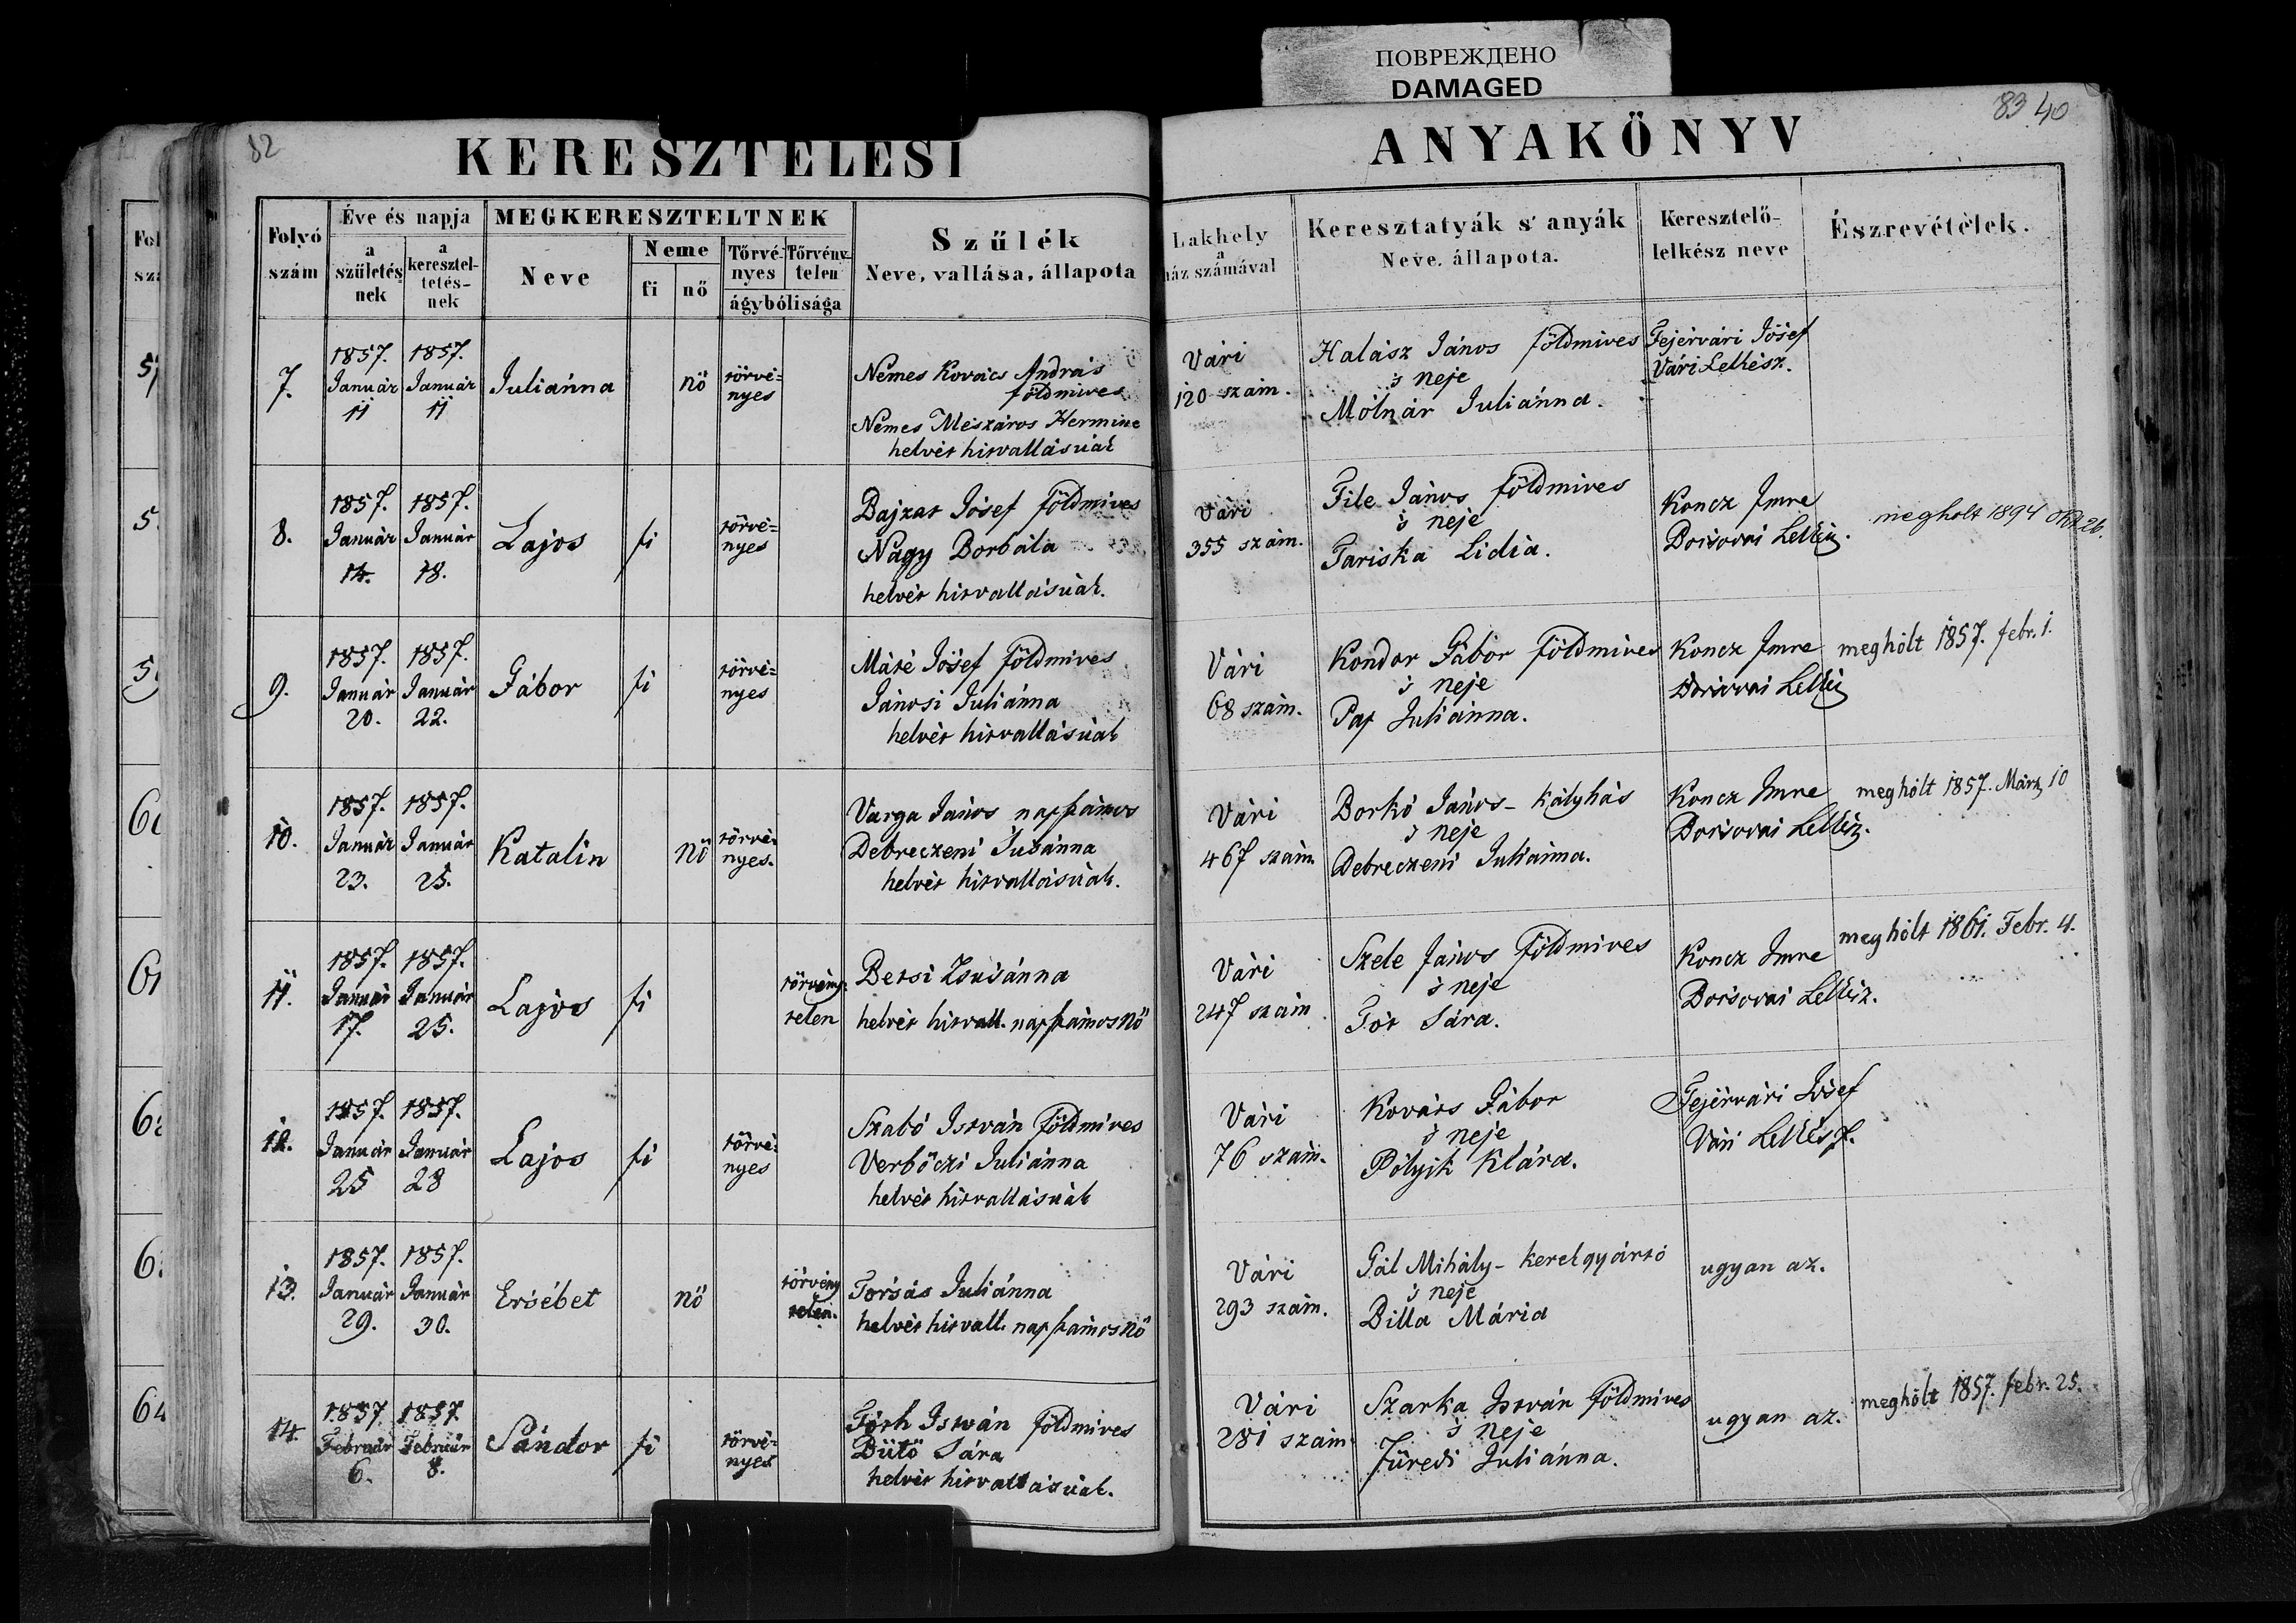 ПОВРЕЖДЕНО
DAMAGED
82
83 40
KERESZTELESI
ANYAKÖNYV
Folyó szám
Éve és napja
a születés nek
a keresztel- tetés- nek
MEGKERESZTELTNEK
Neve
Neme
fi
nő
Törvé- nyes
Törvény- telen
ágybólisága
Szűlék
Neve, vallása, állapota
Lakhely
a
ház számával
Keresztatyák s' anyák
Neve, állapota.
Keresztelő-
lelkész neve
Észrevételek.
7.
1857. Január 11
1857. Január 11
Juliánna
nö
törvé= nyes
Nemes Kovács András
földmives
Nemes Mészáros Hermine
helvét hitvallásúak
Vári
120 szám.
Halász János földmives
s neje
Mólnár Juliánna.
Fejérvári Jósef
Vári Lelkész.
8.
1857. Január 14.
1857. Január 18.
Lajos
fi
törvé= nyes
Bajzat Jósef földmives
Nagy Borbála
helvét hitvallásúak.
Vári
355 szám.
File János földmives
s neje
Tariska Lidia.
Koncz Imre
Borsovai Lelkész.
megholt 1894 Okt 26.
9.
1857. Január 20.
1857. Január 22.
Gábor
fi
törvé= nyes
Máté Jósef földmives
Jánosi Juliánna
helvét hitvallásúak
Vári
68 szám.
Kondor Gábor földmives
s neje
Pap Juliánna.
Koncz Imre
Borsovai Lelkész
meghólt 1857. febr. 1.
10.
1857. Január 23.
1857. Január 25.
Katalin
nö
törvé= nyes.
Varga János napszámos
Debreczeni Susánna
helvét hitvallásúak.
Vári
467 szám
Borkó János - kályhás
s neje
Debreczeni Juliánna.
Koncz Imre
Borsovai Lelkész.
meghólt 1857. Márz 10
11.
1857. Január 17.
1857. Január 25.
Lajos
fi
törvény= telen
Betsi Zsusánna
helvét hitvall. napszámosnö
Vári
247 szám
Szele János földmives
s neje
Tót Sára.
Koncz Imre
Borsovai Lelkész.
meghólt 1861. Febr. 4.
12.
1857. Január 25
1857. Január 28
Lajos
fi
törvé= nyes
Szabó István földmives
Verböczi Juliánna
helvét hitvallásúak
Vári
76 szám.
Kováts Gábor
s neje
Pólyik Klára.
Fejérvári Jósef
Vári Lelkész.
13.
1857. Január 29.
1857. Január 30.
Ersébet
nö
törvény telen.
Forsás Juliánna
helvét hitvall. napszámosnö
Vári
293 szám.
Gál Mihály - kerékgyártó
s neje
Billa Mária
ugyan az.
14.
1857. Február 6.
1857. Február 8.
Sándor
fi
törvé= nyes
Tóth István földmives
Bütö Sára
helvét hitvallásúak.
Vári
281 szám
Szarka István földmives
s neje
Füredi Juliánna.
ugyan az.
meghólt 1857. febr. 25.